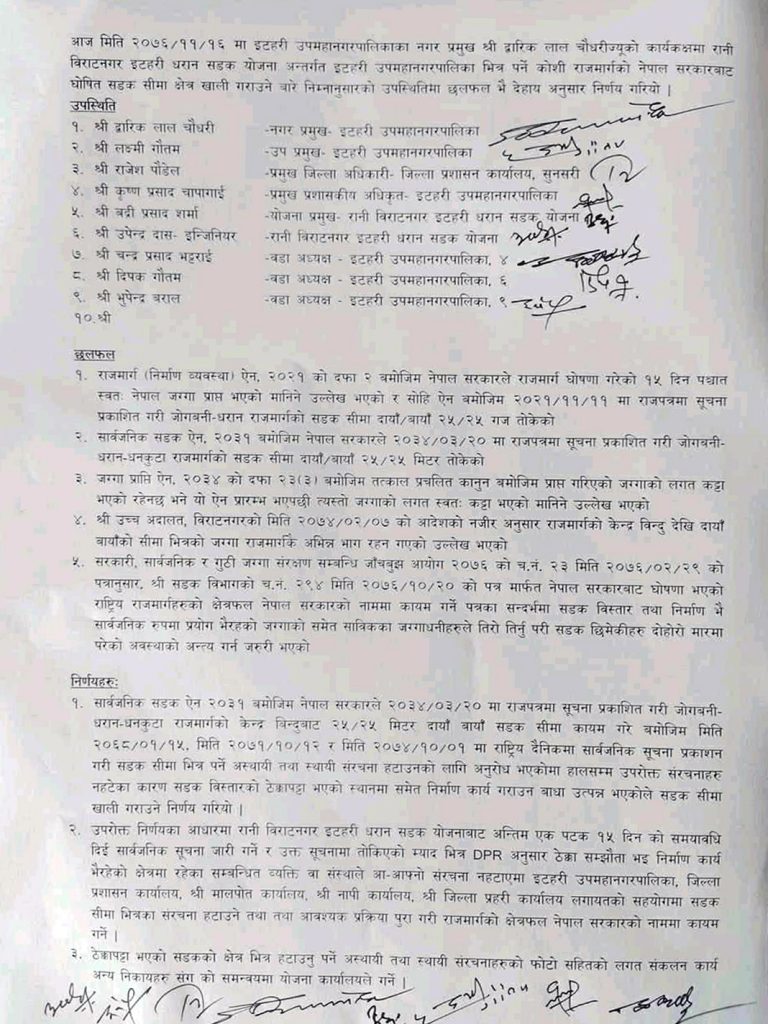 आज मिति २०७६/११/१६ मा इटहरी उपमहानगरपालिकाका नगर प्रमुख श्री द्वारिक लाल चौधरीज्यूको कार्यकक्षमा रानी
विराटनगर इटहरी धरान सडक योजना अन्तर्गत इटहरी उपमहानगरपालिका भित्र पर्ने कोशी राजमार्गको नेपाल सरकारबाट
घोषित सडक सीमा क्षेत्र खाली गराउने बारे निम्नानुसारको उपस्थितिमा छलफल भै देहाय अनुसार निर्णय गरियो |
उपस्थिति
१. श्री द्वारिक लाल चौधरी -नगर प्रमुख- इटहरी उपमहानगरपालिका
२. श्री लक्ष्मी गौतम -उप प्रमुख- इटहरी उपमहानगरपालिका
३. श्री राजेश पौडेल -प्रमुख जिल्ला अधिकारी- जिल्ला प्रशासन कार्यालय, सुनसरी
४. श्री कृष्ण प्रसाद चापागाई -प्रमुख प्रशासकीय अधिकृत- इटहरी उपमहानगरपालिका
५. श्री बद्री प्रसाद शर्मा -योजना प्रमुख- रानी विराटनगर इटहरी धरान सडक योजना
६. श्री उपेन्द्र दास- इन्जिनियर -रानी विराटनगर इटहरी धरान सडक योजना
७. श्री चन्द्र प्रसाद भट्टराई -वडा अध्यक्ष - इटहरी उपमहानगरपालिका, ४
८. श्री दिपक गौतम -वडा अध्यक्ष - इटहरी उपमहानगरपालिका, ६
९. श्री भुपेन्द्र बराल -वडा अध्यक्ष - इटहरी उपमहानगरपालिका, ९
१०.श्री
छलफल
१. राजमार्ग (निर्माण व्यवस्था) ऐन, २०२१ को दफा २ बमोजिम नेपाल सरकारले राजमार्ग घोषणा गरेको १५ दिन पश्चात
स्वतः नेपाल जग्गा प्राप्त भएको मानिने उल्लेख भएको र सोहि ऐन बमोजिम २०२१/११/११ मा राजपत्रमा सूचना
प्रकाशित गरी जोगबनी-धरान राजमार्गको सडक सीमा दायाँ/बायाँ २५/२५ गज तोकेको
२. सार्वजनिक सडक ऐन, २०३१ बमोजिम नेपाल सरकारले २०३४/०३/२० मा राजपत्रमा सूचना प्रकाशित गरी जोगबनी-
धरान-धनकुटा राजमार्गको सडक सीमा दायाँ/बायाँ २५/२५ मिटर तोकेको
३. जग्गा प्राप्ति ऐन, २०३४ को दफा २३(३) बमोजिम तत्काल प्रचलित कानुन बमोजिम प्राप्त गरिएको जग्गाको लगत कट्टा
भएको रहेनछ भने यो ऐन प्रारम्भ भएपछी त्यस्तो जग्गाको लगत स्वतः कट्टा भएको मानिने उल्लेख भएको
४. श्री उच्च अदालत, विराटनगरको मिति २०७४/०२/०७ को आदेशको नजीर अनुसार राजमार्गको केन्द्र विन्दु देखि दायाँ
बायाँको सीमा भित्रको जग्गा राजमार्गकै अभिन्न भाग रहन गएको उल्लेख भएको
५. सरकारी, सार्वजनिक र गुठी जग्गा संरक्षण सम्बन्धि जाँचबुझ आयोग २०७६ को च.नं. २३ मिति २०७६/०२/२९ को
पत्रानुसार, श्री सडक विभागको च.नं. २९४ मिति २०७६/१०/२० को पत्र मार्फत नेपाल सरकारबाट घोषणा भएको
राष्ट्रिय राजमार्गहरुको क्षेत्रफल नेपाल सरकारको नाममा कायम गर्ने पत्रका सन्दर्भमा सडक विस्तार तथा निर्माण भै
सार्वजनिक रुपमा प्रयोग भैरहको जग्गाको समेत साविकका जग्गाधनीहरुले तिरो तिर्नु परी सडक छिमेकीहरु दोहोरो मारमा
परेको अवस्थाको अन्त्य गर्न जरुरी भएको
निर्णयहरुः
१. सार्वजनिक सडक ऐन २०३१ बमोजिम नेपाल सरकारले २०३४/०३/२० मा राजपत्रमा सूचना प्रकाशित गरी जोगबनी-
धरान-धनकुटा राजमार्गको केन्द्र विन्दुबाट २५/२५ मिटर दायाँ बायाँ सडक सीमा कायम गरे बमोजिम मिति
२०६८/०१/१५, मिति २०७१/१०/१२ र मिति २०७४/१०/०१ मा राष्ट्रिय दैनिकमा सार्वजनिक सूचना प्रकाशन
गरी सडक सीमा भित्र पर्ने अस्थायी तथा स्थायी संरचना हटाउनको लागि अनुरोध भएकोमा हालसम्म उपरोक्त संरचनाहरु
नहटेका कारण सडक विस्तारको ठेक्कापट्टा भएको स्थानमा समेत निर्माण कार्य गराउन बाधा उत्पन्न भएकोले सडक सीमा
खाली गराउने निर्णय गरियो |
२. उपरोक्त निर्णयका आधारमा रानी विराटनगर इटहरी धरान सडक योजनाबाट अन्तिम एक पटक १५ दिन को समयावधि
दिई सार्वजनिक सूचना जारी गर्ने र उक्त सूचनामा तोकिएको म्याद भित्र DPR अनुसार ठेक्का सम्झौता भइ निर्माण कार्य
भैरहेको क्षेत्रमा रहेका सम्बन्धित व्यक्ति वा संस्थाले आ-आफ्नो संरचना नहटाएमा इटहरी उपमहानगरपालिका, जिल्ला
प्रशासन कार्यालय, श्री मालपोत कार्यालय, श्री नापी कार्यालय, श्री जिल्ला प्रहरी कार्यालय लगायतको सहयोगमा सडक
सीमा भित्रका संरचना हटाउने तथा तथा आवश्यक प्रक्रिया पुरा गरी राजमार्गको क्षेत्रफल नेपाल सरकारको नाममा कायम
गर्ने |
३. ठेक्कापट्टा भएको सडकको क्षेत्र भित्र हटाउनु पर्ने अस्थायी तथा स्थायी संरचनाहरुको फोटो सहितको लगत संकलन कार्य
अन्य निकायहरु संग को समन्वयमा योजना कार्यालयले गर्ने |